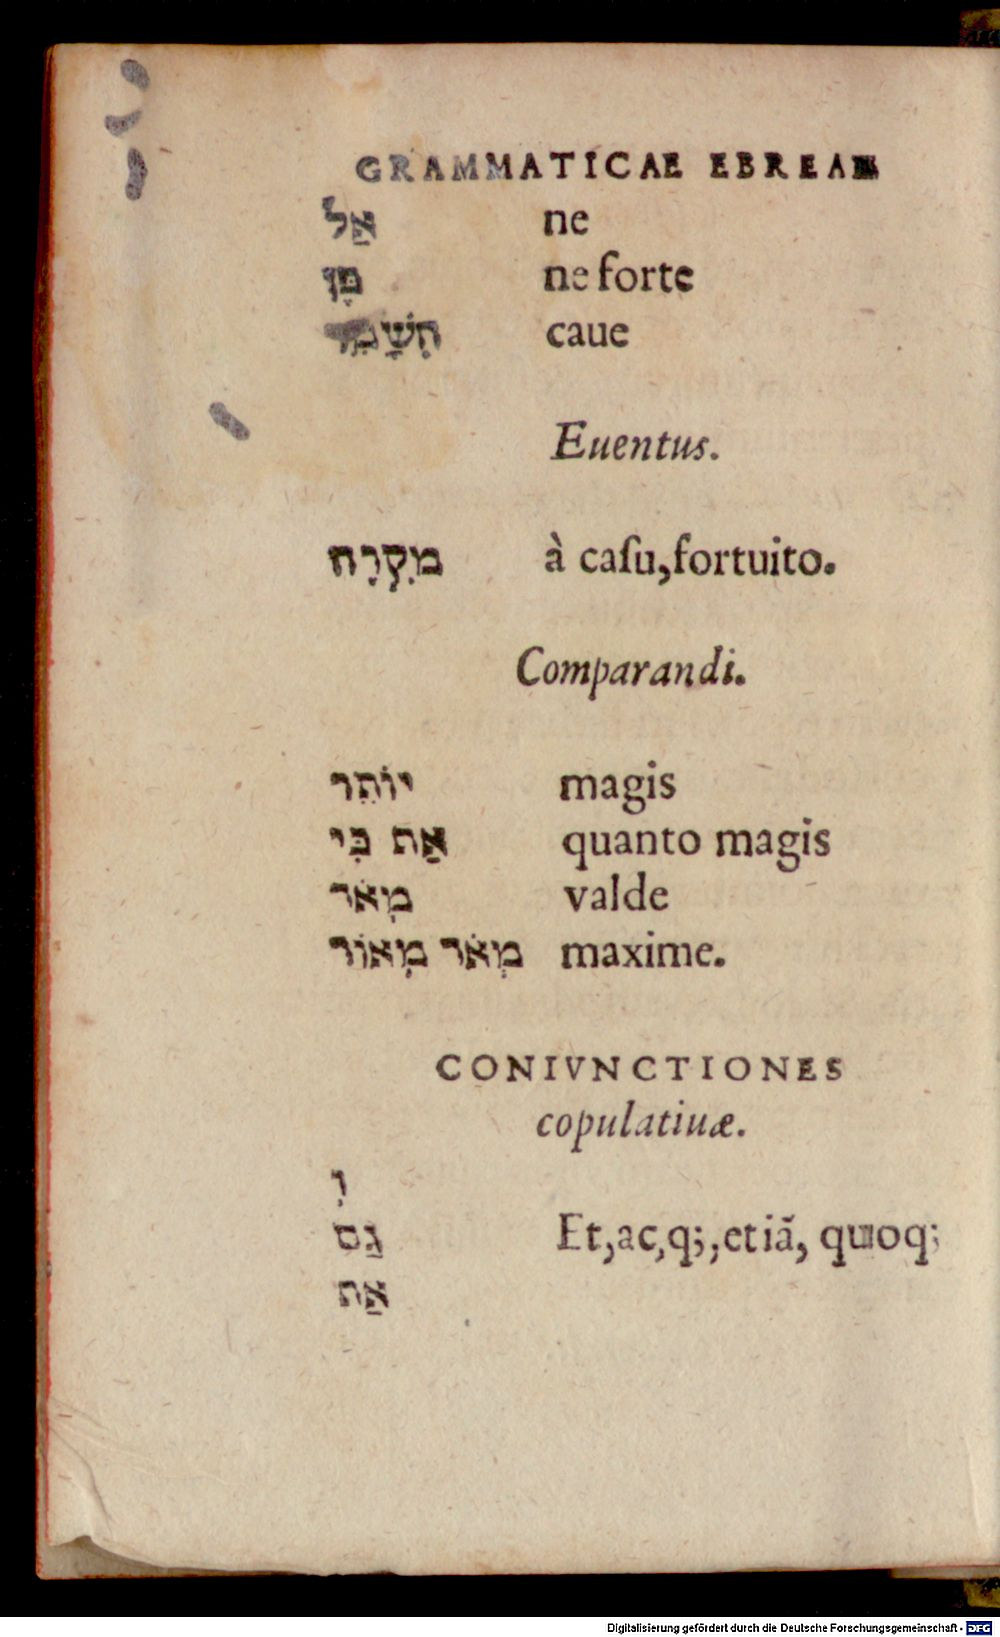 GRAMMATICAE EBREAE
אַל ne
פֶּן ne forte
הִשָּׁמֵר caue
Euentus.
מִקְרֶה à caſu, fortuito.
Comparandi.
יוֹתֵר magis
אַף כִּי quanto magis
מְאֹד valde
מְאֹד מְאוֹד maxime.
CONIVNCTIONES
copulatiuæ.
וְ
גַּם Et, ac, q;, etiã, quoq;
אַף
Digitalisierung gefördert durch die Deutsche Forschungsgemeinschaft - DFG